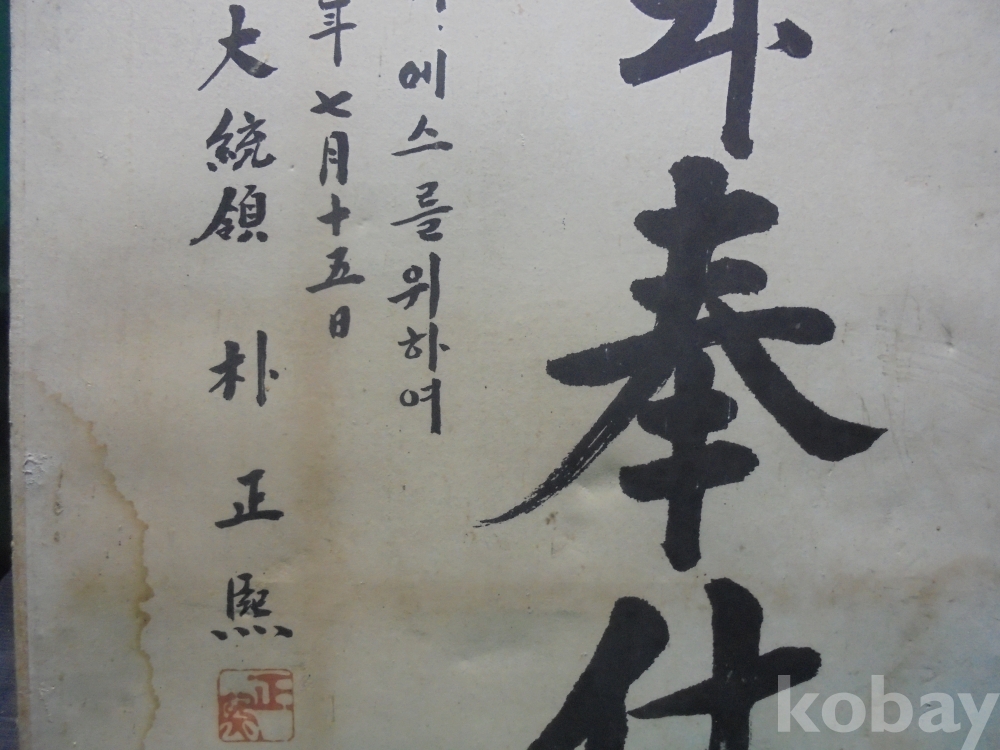 奉仕
에스를위하여
年七月十五日
大統領 朴正熙
正熙
kobay